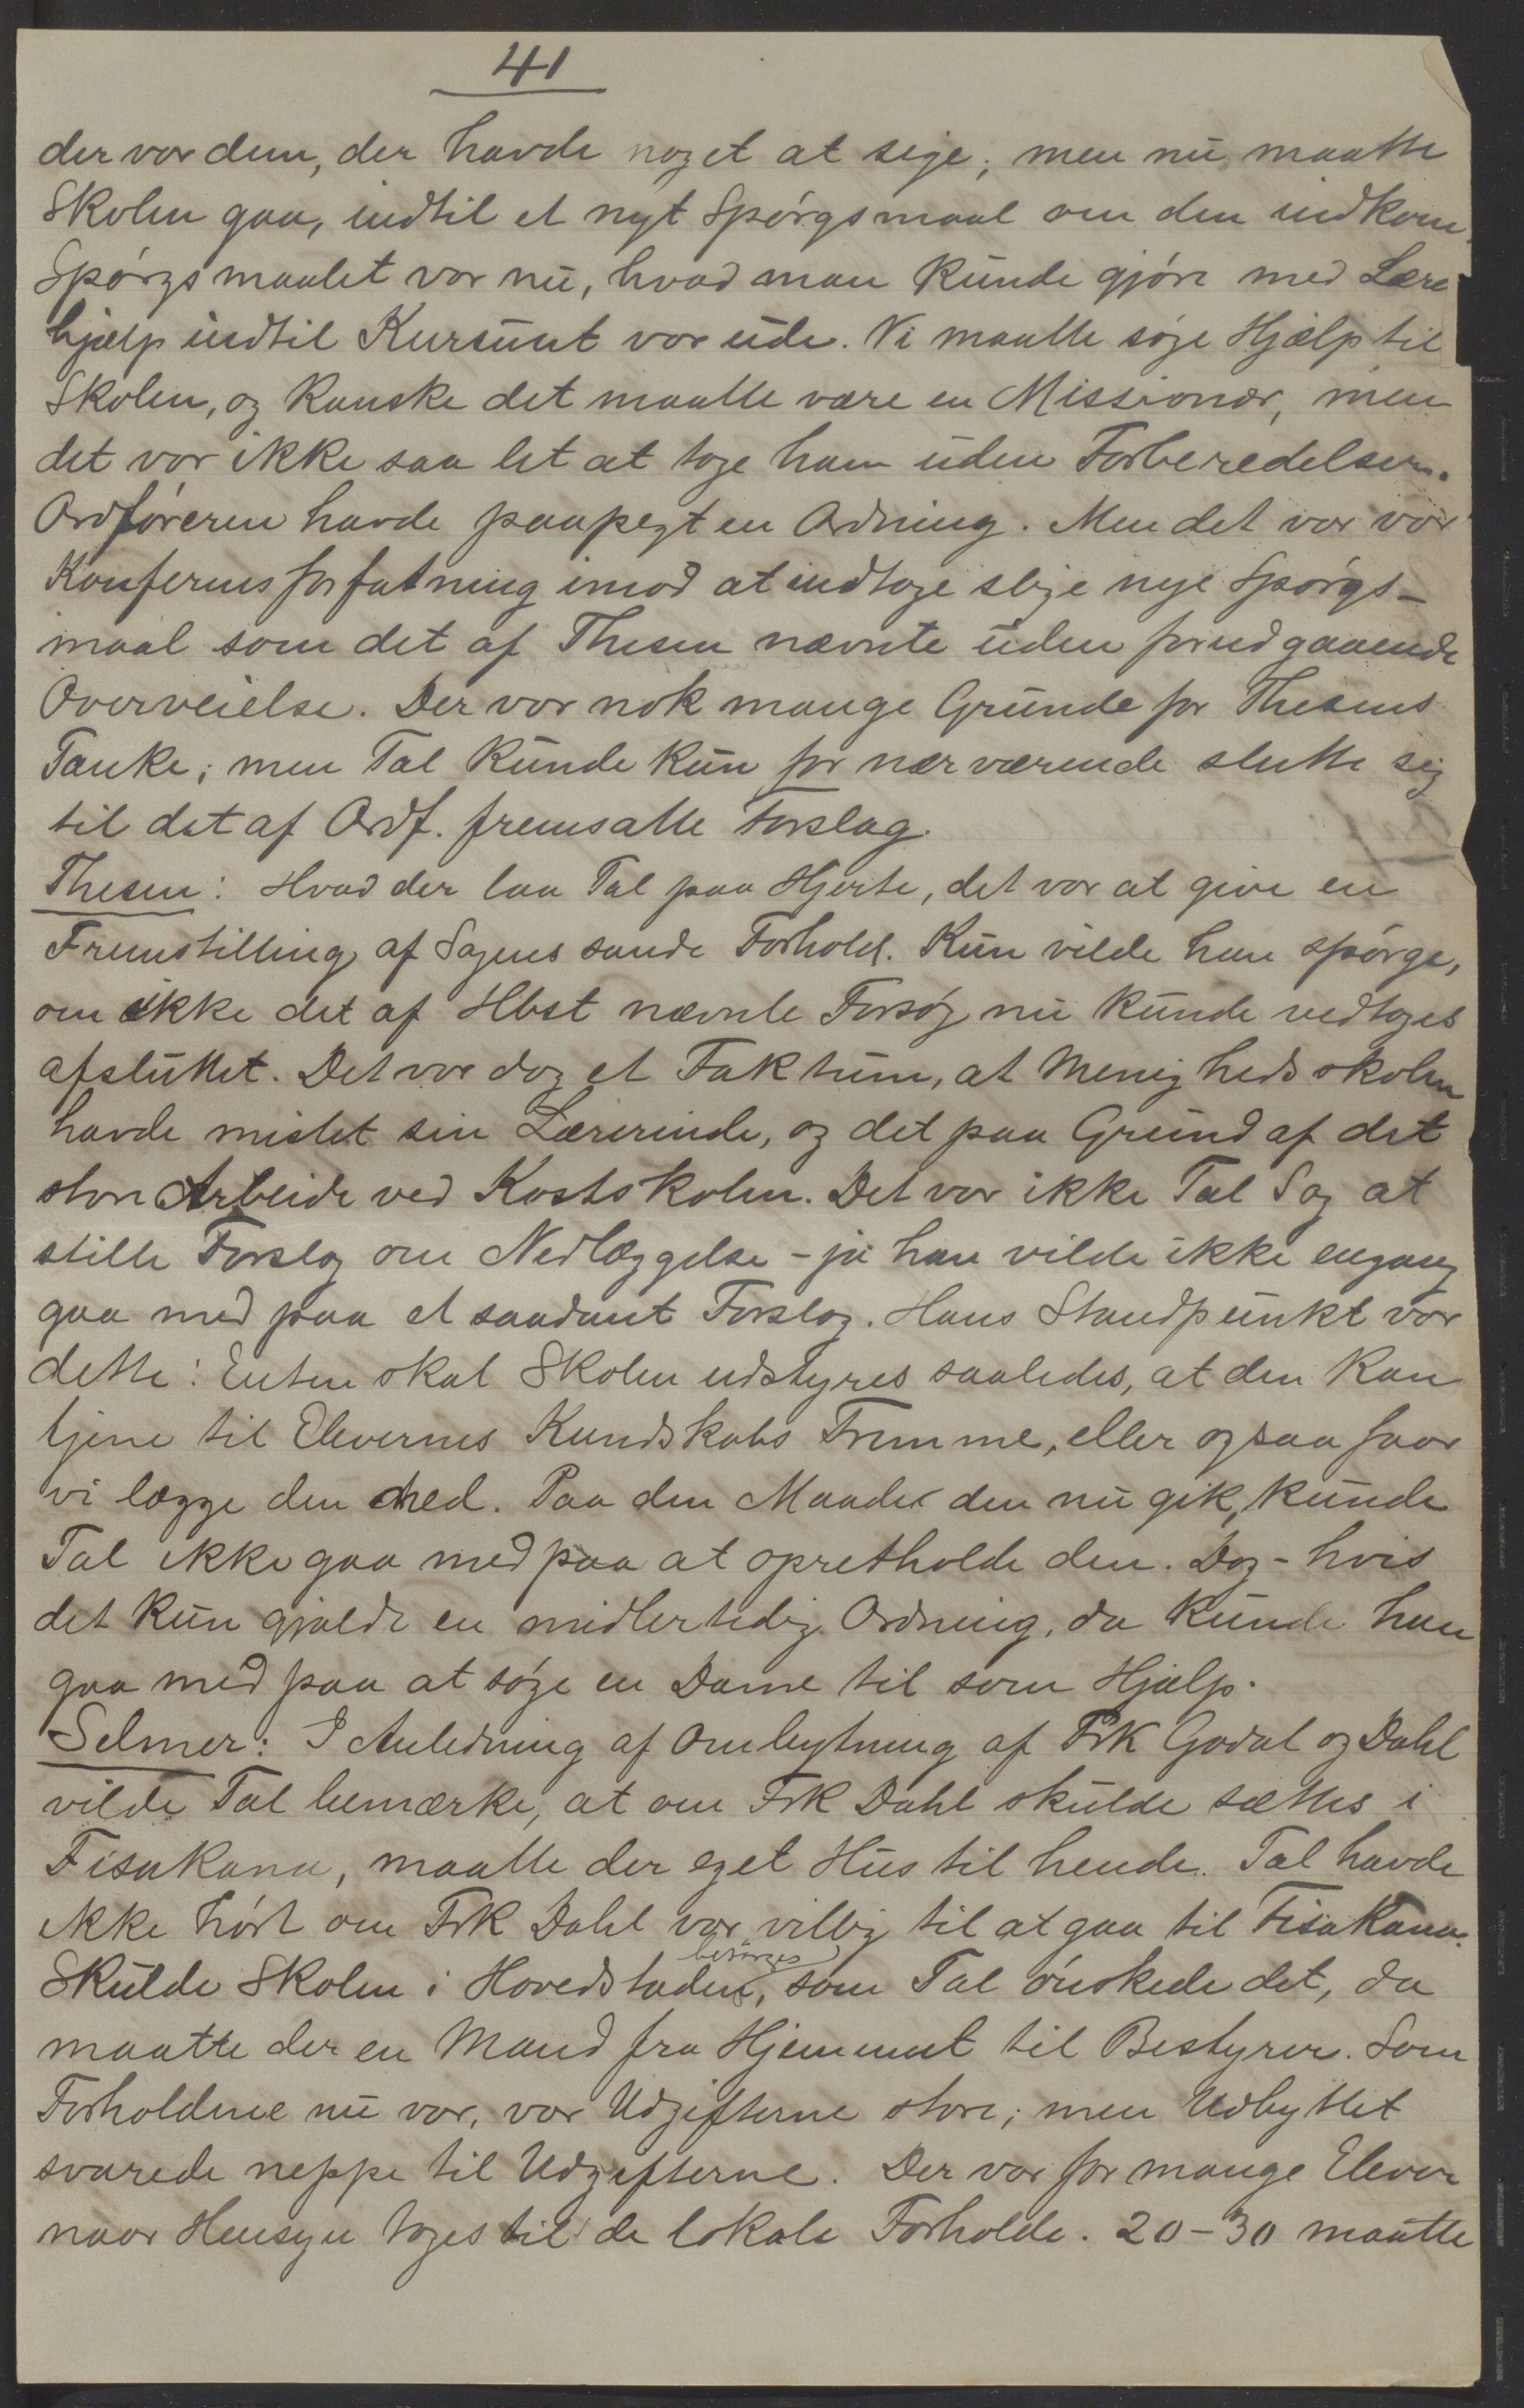 41
der var dem, der havde noget at sige; men nu maatte
Skolen gaa, indtil et nyt Spørgsmaal om den indkom.
Spørgsmaalet var nu, hvad man kunde gjøre med Lære
hjælp indtil Kursuset var ude. Vi maatte søge Hjælp til
Skolen, og kanske det maatte være en Missionær, men
det var ikke saa let at tage ham uden Forberedelser.
Ordføreren havde paapegt en Ordning. Men det var vor
Konferensforfatning imod at indtage slige nye Spørgs-
maal som det af Thesen nævnte uden forudgaaende
Overveielse. Der var nok mange Grunde for Thesens
Tanke; men Tal kunde kun for nærværende slutte sig
til det af Ordf. fremsatte Forslag.
Thesen: Hvad der laa Tal paa Hjerte, det var at give en
Fremstilling af Sagens sande Forhold. Kun vilde han spørge,
om ikke det af Hbst nævnte Forsøg nu kunde vedtages
afsluttet. Det var dog et Faktum, at Menighedsskolen
havde mistet sin Lærerinde, og det paa Grund af det
store Arbeide ved Kostskolen. Det var ikke Tal Sag at
stille Forslag om Nedlæggelse - ja han vilde ikke engang
gaa med paa et saadant Forslag. Hans Standpunkt var
dette: Enten skal Skolen udstyres saaledes, at den kan
tjene til Elevernes Kundskabs Fremme, eller ogsaa faar
vi lægge den ned. Paa den Maade den nu gik, kunde
Tal ikke gaa med paa at opretholde den. Dog - hvis
det kun gjaldt en midlertidig Ordning, da kunde han
gaa med paa at søge en Dame til som Hjælp.
Selmer: I Anledning af Ombytning af Frk Godal og Dahl
vilde Tal bemærke, at om Frk Dahl skulde sættes i
Fisakana, maatte der eget Hus til hende. Tal havde
ikke hørt om Frk Dahl var villig til at gaa til Fisakana.
Skulde Skolen i Hovedstaden besørges, som Tal ønskede det, da
maatte der en Mand fra Hjemmet til Bestyrer. Som
Forholdene nu var, var Udgifterne store; men Udbyttet
svarede neppe til Udgifterne. Der var for mange Elever
naar Hensyn toges til de lokale Forholde. 20-30 maatte